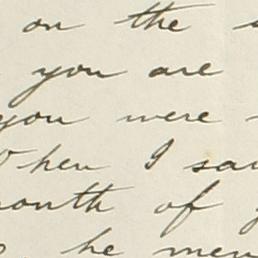 on the
you are
you were
when I saw
month of
he men